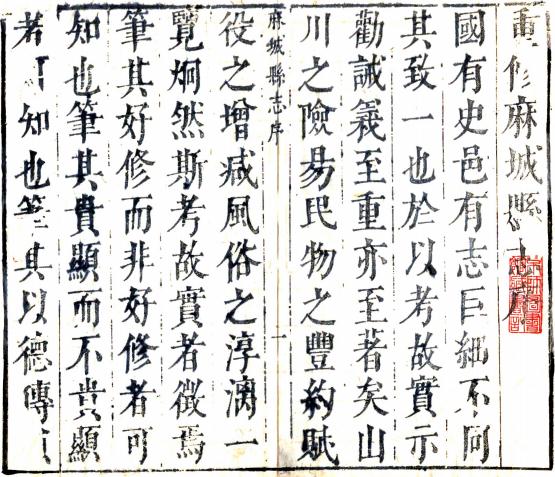 重修麻城縣志序
國有史邑有志巨細不同
其致一也於以考故實示
勸誡義至重亦至著矣山
川之險易民物之豐約賦
麻城縣志序
一
役之增减風俗之淳漓一
覽炯然斯考故實者徵焉
筆其好修而非好修者可
知也筆其貴顯而不貴顯
者可知也筆其以德傳